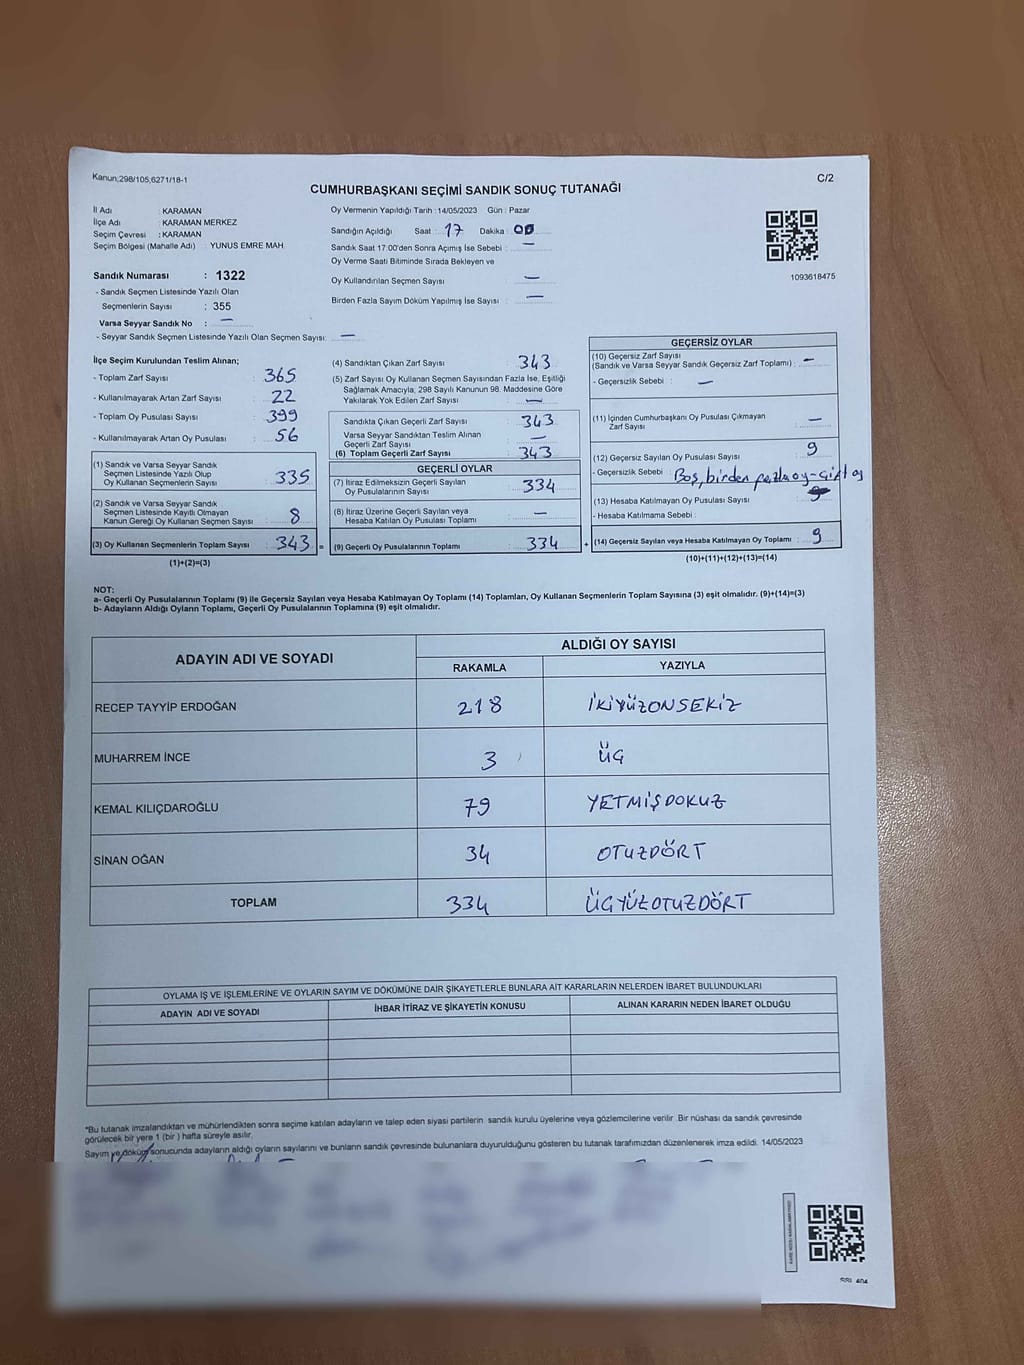 Kanun;298/105,6271/18-1
C/2
CUMHURBAŞKANI SEÇİMİ SANDIK SONUÇ TUTANAĞI
İl Adı : KARAMAN
İlçe Adı : KARAMAN MERKEZ
Seçim Çevresi : KARAMAN
Seçim Bölgesi (Mahalle Adı) : YUNUS EMRE MAH.
Sandık Numarası : 1322
- Sandık Seçmen Listesinde Yazılı Olan
Seçmenlerin Sayısı : 355
Varsa Seyyar Sandık No : —
- Seyyar Sandık Seçmen Listesinde Yazılı Olan Seçmen Sayısı: —
Oy Vermenin Yapıldığı Tarih : 14/05/2023 Gün : Pazar
Sandığın Açıldığı Saat : 17 Dakika : 00
Sandık Saat 17:00'den Sonra Açımış İse Sebebi : —
Oy Verme Saati Bitiminde Sırada Bekleyen ve
Oy Kullandırılan Seçmen Sayısı : —
Birden Fazla Sayım Döküm Yapılmış İse Sayısı : —
1093618475
İlçe Seçim Kurulundan Teslim Alınan;
- Toplam Zarf Sayısı : 365
- Kullanılmayarak Artan Zarf Sayısı : 22
- Toplam Oy Pusulası Sayısı : 399
- Kullanılmayarak Artan Oy Pusulası : 56
(1) Sandık ve Varsa Seyyar Sandık
Seçmen Listesinde Yazılı Olup
Oy Kullanan Seçmenlerin Sayısı : 335
(2) Sandık ve Varsa Seyyar Sandık
Seçmen Listesinde Kayıtlı Olmayan
Kanun Gereği Oy Kullanan Seçmen Sayısı : 8
(3) Oy Kullanan Seçmenlerin Toplam Sayısı : 343 =
(1)+(2)=(3)
(4) Sandıktan Çıkan Zarf Sayısı : 343
(5) Zarf Sayısı Oy Kullanan Seçmen Sayısından Fazla İse, Eşitliği
Sağlamak Amacıyla; 298 Sayılı Kanunun 98. Maddesine Göre
Yakılarak Yok Edilen Zarf Sayısı : —
Sandıkta Çıkan Geçerli Zarf Sayısı : 343
Varsa Seyyar Sandıktan Teslim Alınan
Geçerli Zarf Sayısı : —
(6) Toplam Geçerli Zarf Sayısı : 343
GEÇERLİ OYLAR
(7) İtiraz Edilmeksizin Geçerli Sayılan
Oy Pusulalarının Sayısı : 334
(8) İtiraz Üzerine Geçerli Sayılan veya
Hesaba Katılan Oy Pusulası Toplamı : —
(9) Geçerli Oy Pusulalarının Toplamı : 334 +
GEÇERSİZ OYLAR
(10) Geçersiz Zarf Sayısı
(Sandık ve Varsa Seyyar Sandık Geçersiz Zarf Toplamı) : —
- Geçersizlik Sebebi : —
(11) İçinden Cumhurbaşkanı Oy Pusulası Çıkmayan
Zarf Sayısı : —
(12) Geçersiz Sayılan Oy Pusulası Sayısı : 9
- Geçersizlik Sebebi : Boş, birden fazla oy-çift oy
(13) Hesaba Katılmayan Oy Pusulası Sayısı :
- Hesaba Katılmama Sebebi :
(14) Geçersiz Sayılan veya Hesaba Katılmayan Oy Toplamı : 9
(10)+(11)+(12)+(13)=(14)
NOT:
a- Geçerli Oy Pusulalarının Toplamı (9) ile Geçersiz Sayılan veya Hesaba Katılmayan Oy Toplamı (14) Toplamları, Oy Kullanan Seçmenlerin Toplam Sayısına (3) eşit olmalıdır. (9)+(14)=(3)
b- Adayların Aldığı Oyların Toplamı, Geçerli Oy Pusulalarının Toplamına (9) eşit olmalıdır.
ADAYIN ADI VE SOYADI ALDIĞI OY SAYISI
RAKAMLA YAZIYLA
RECEP TAYYİP ERDOĞAN 218 İKİYÜZONSEKİZ
MUHARREM İNCE 3 ÜÇ
KEMAL KILIÇDAROĞLU 79 YETMİŞDOKUZ
SİNAN OĞAN 34 OTUZDÖRT
TOPLAM 334 ÜÇYÜZOTUZDÖRT
OYLAMA İŞ VE İŞLEMLERİNE VE OYLARIN SAYIM VE DÖKÜMÜNE DAİR ŞİKAYETLERLE BUNLARA AİT KARARLARIN NELERDEN İBARET BULUNDUKLARI
ADAYIN ADI VE SOYADI İHBAR İTİRAZ VE ŞİKAYETİN KONUSU ALINAN KARARIN NEDEN İBARET OLDUĞU
*Bu tutanak imzalandıktan ve mühürlendikten sonra seçime katılan adayların ve talep eden siyasi partilerin sandık kurulu üyelerine veya gözlemcilerine verilir. Bir nüshası da sandık çevresinde
görülecek bir yere 1 (bir ) hafta süreyle asılır.
Sayım ve döküm sonucunda adayların aldığı oyların sayılarını ve bunların sandık çevresinde bulunanlara duyurulduğunu gösteren bu tutanak tarafımızdan düzenlenerek imza edildi. 14/05/2023